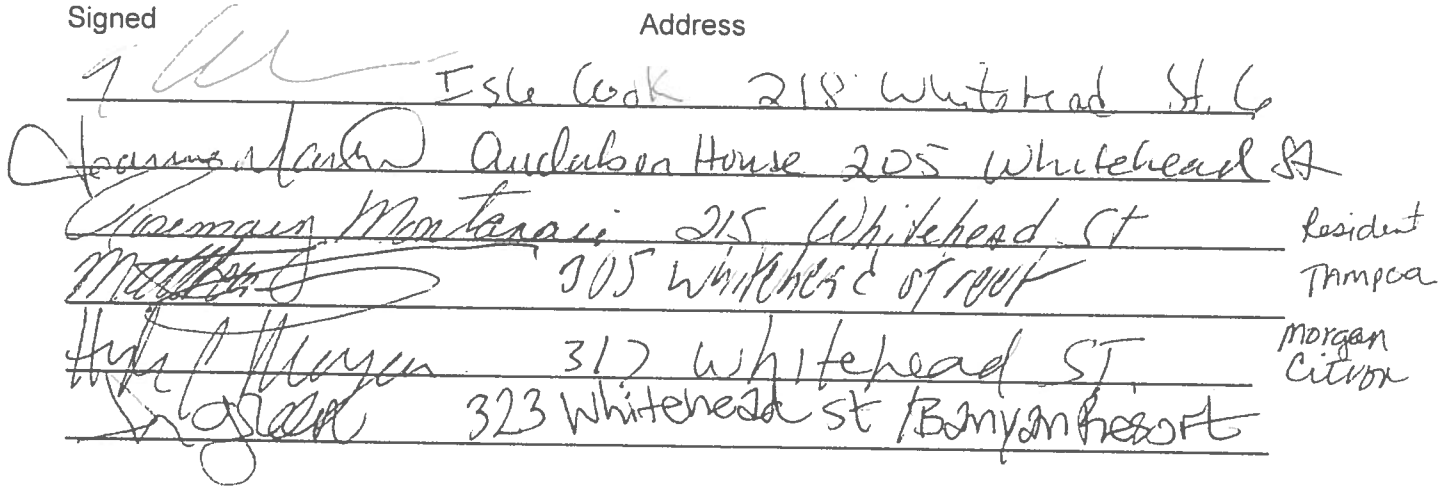 Signed Address
Isle Cook 218 Whitehead St. 6
Audubon House 205 Whitehead St
Rosemary Montanari 215 Whitehead St Resident
305 Whitehead street
317 Whitehead ST. Morgan
Citron
323 Whitehead st /Banyan Resort